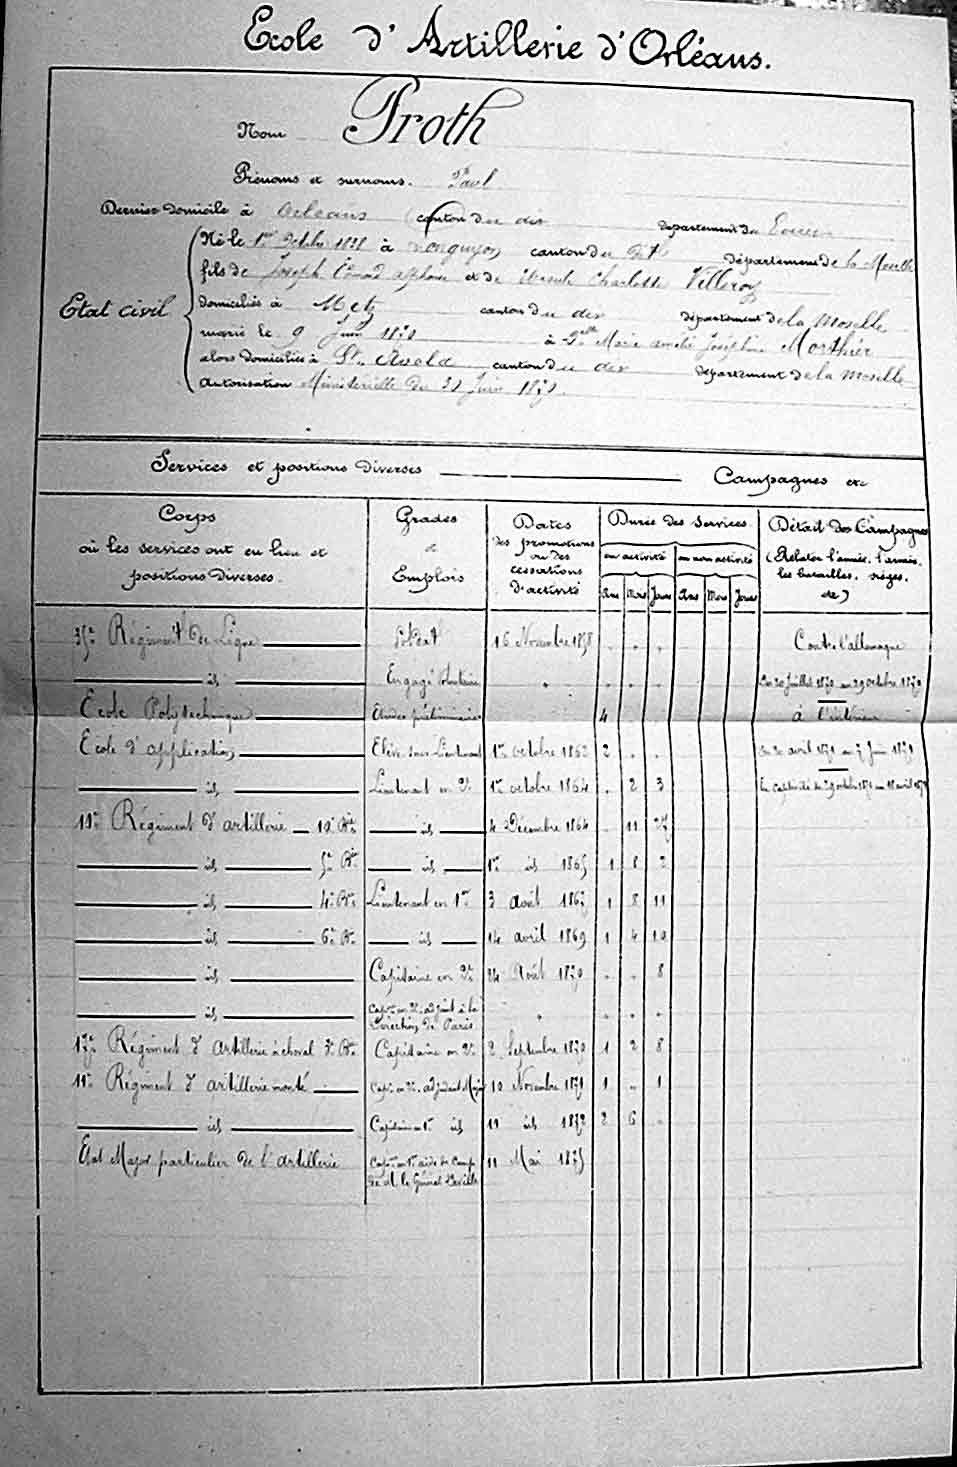 Ecole d'Artillerie d'Orléans.
Nom Proth
Prénoms et surnoms. Paul
Dernier domicile à Orléans canton du dit département du Loiret
Né le 1er Octobre à Longuyon canton du dit département de la Moselle
fils de Joseph alphonse et de Ursule Charlotte Villeroy
Etat civil
domiciliés à Metz canton du dit département de la Moselle
marié le 9 Juin à Delle Marie amélie Joséphine Morthier
alors domiciliée à St Avold canton du dit département de la Moselle
Autorisation Ministérielle du Juin
Services et positions diverses Campagnes etc
Corps
où les services ont eu lieu et
positions diverses.
Grades
et
Emplois
Dates
des promotions
ou des
cessations
d'activité
Durée des Services
en activité en non activité
Ans Mois Jours Ans Mois Jours
Détail des Campagnes
(Relater l'année, l'armée,
les batailles, sièges,
etc)
Régiment de Ligne Soldat 16 Novembre Contre l'allemagne
id Engagé Volontaire " Du 20 Juillet 1870 au 29 octobre 1870
Ecole Polytechnique Etudes préliminaires 4 à l'intérieur
Ecole d'application Elève sous Lieutenant 1er octobre 1862 2 " " avril 1871 au 7 Juin 1871
id Lieutenant en 2e 1er octobre 1864 " 2 3 En captivité du 29 octobre au avril
Régiment d'artillerie Bie id 4 Décembre 1864 " 11 27
id 5e Bie id 1er id 1865 1 8 2
id 4e Bie Lieutenant en 1er 3 août 1867 1 8 11
id 6e Bie id 14 avril 1869 1 4 10
id Capitaine en 2e 24 Août 1870 " " 8
id Capne en 2e adjoint à la
Direction de Paris " " " "
17e Régiment d'Artillerie à cheval Bie Capitaine en 2e 2 Septembre 1870 1 2 8
11e Régiment d'artillerie monté Capne en 2e adjudant Major 10 Novembre 1871 1 " 1
id Capitaine en 1er id 11 id 1872 2 6 "
Etat Major particulier de l'artillerie Capne en 1er aide de Camp
de M. le Général 11 Mai 1875